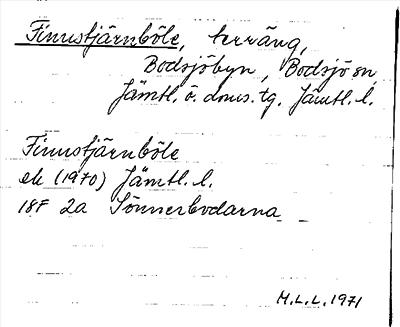 Finnstjärnböle, terräng,
Bodsjöbyn, Bodsjö sn,
Jämtl. ö. doms. tg. Jämtl. l.
Finnstjärnböle
ek (1970) Jämtl. l.
18F 2a Sönnerbodarna
M.L.L. 1971